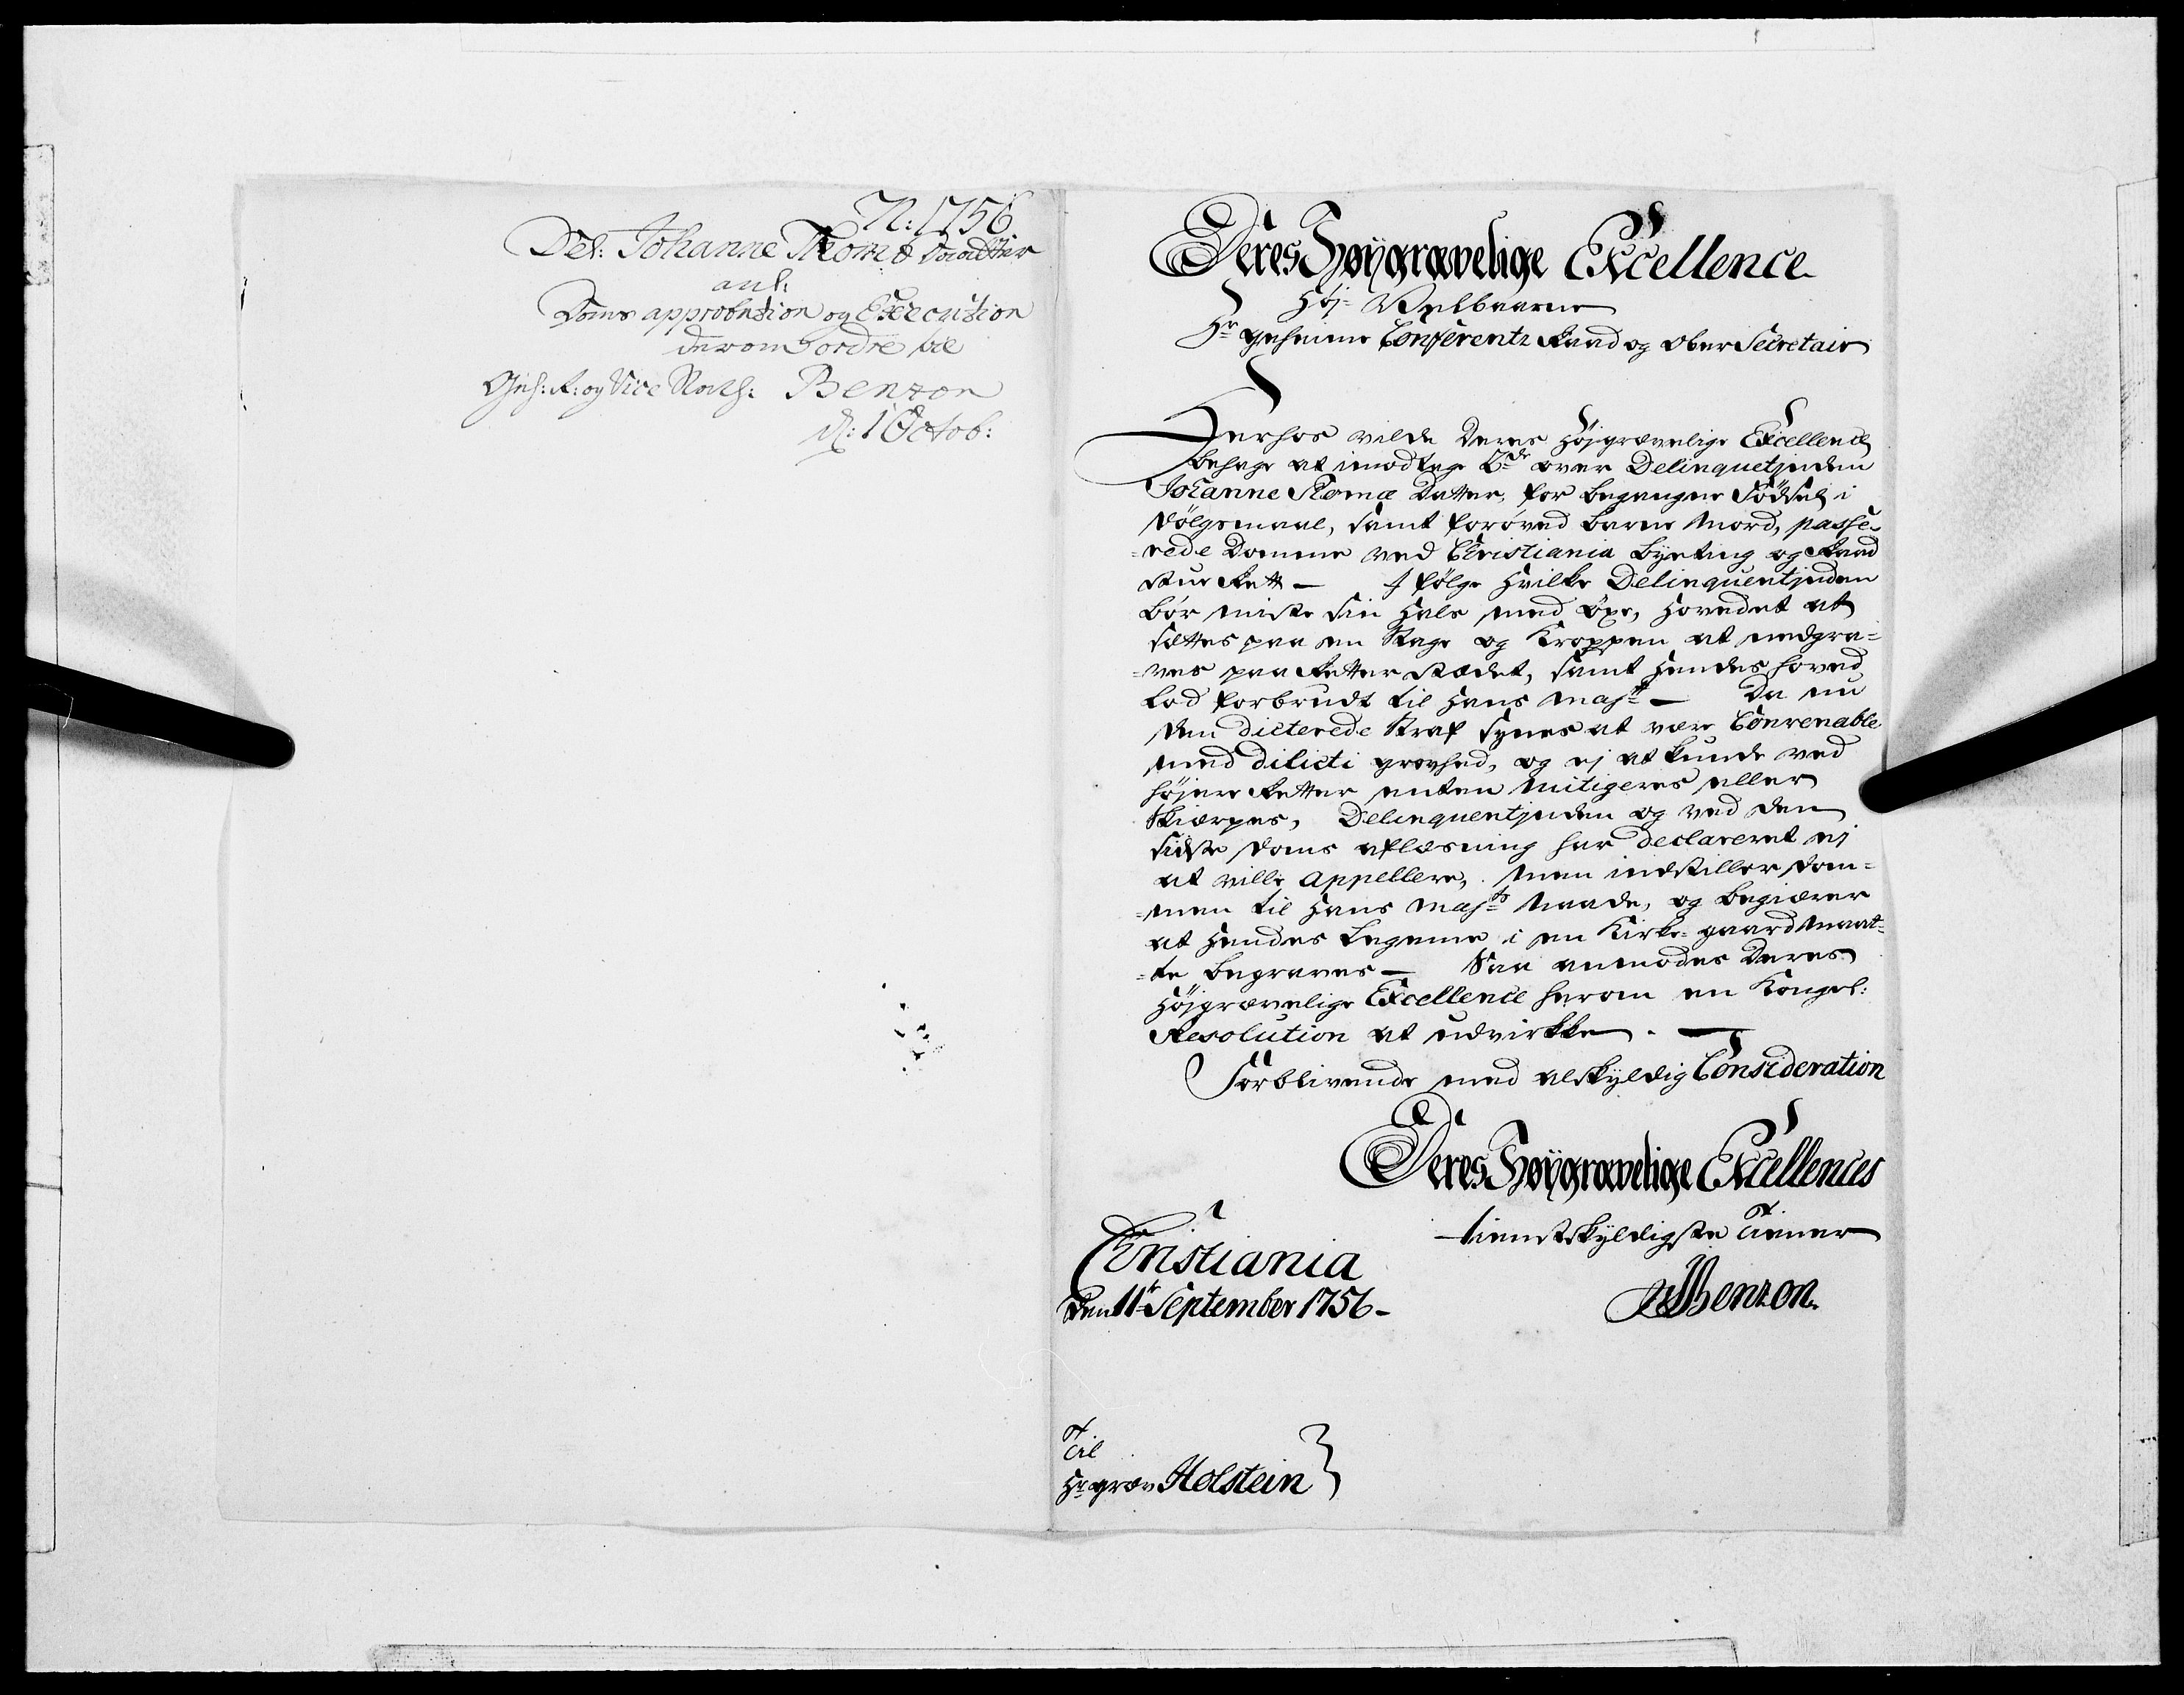 N: 1756
Del: Johanne Thomæ Daatter
anl:
Doms approbation og Execution
derom ordre til
Geh: R: og Vice Stath: Benzon
d: 1 Octob:
Deres Høygrævelige Excellence
Høj- Velbaarne
Hr geheime Conferentz Raad og Ober Secretair
Herhos vilde Deres Højgrævelige Excellence
behage at imodtage 2de over Delinquetjnden
Johanne Thomæ Datter, for begangne Födsel i
Dölgsmaal, samt foröved barne Mord, passe-
=rede Domme ved Christiania byeting og Raad
stue Rett – I fölge Hvilke Delinquentjnden
bör miste sin Hals med öxe, Hovedet at
settes paa en Stage og Kroppen at nedgra=
=ves paa Retter stædet, samt Hendes hoved
lod forbrudt til Hans Majt – Da nu
den dicterede Straf synes at være Convenable
med dilicti grovhed, og ej at kunde ved
höjere Retter enten Mitigeres eller
Skiærpes, Delinquentjnden og ved den
sidste Doms aflæsning har declareret ej
at ville appellere, men indstiller Dom=
=men til Hans Majts Naade, og begiærer
at Hendes Legeme i en Kirke-gaard maat=
=te begraves – Saa anmodes Deres
Höjgrævelige Excellence herom en Kongel:
Resolution at udvirkke. –
Forblivende med alskyldig Consideration
Deres Høygrævelige Excellences
tienstskyldigste Tiener
Christiania
Den 11te September 1756 –
Benzon.
Til
Hr grev Holstein